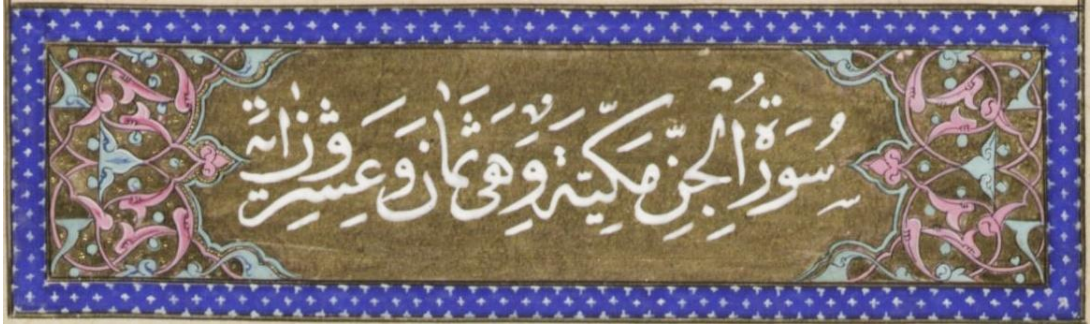 سُورَةُ الْجِنِّ مَكِّيَّة وَهِيَ ثَمَانٌ وَعِشْرُونَ اٰيَة